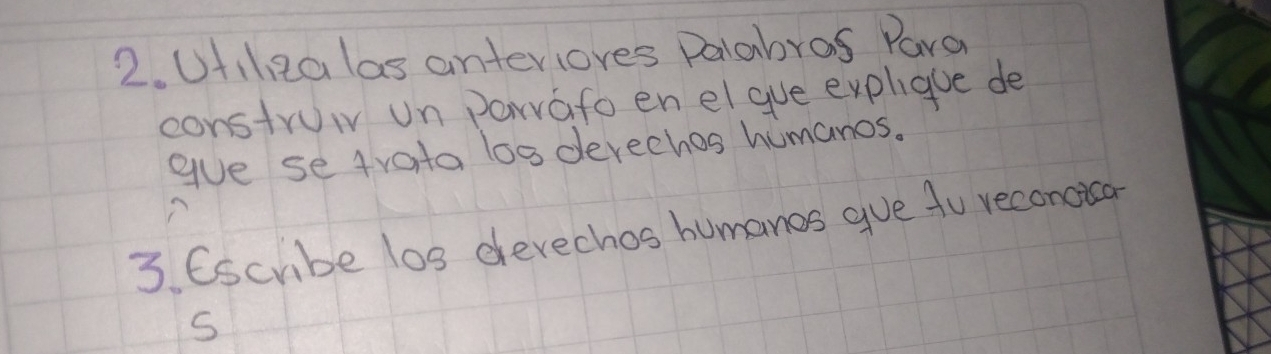 2. Utiliza las anteriores Palabras Para
construir un parráfo en el que explique de
que se trata los derechos humanos.
3. Escribe los derechos humanos que tu reconozca
s